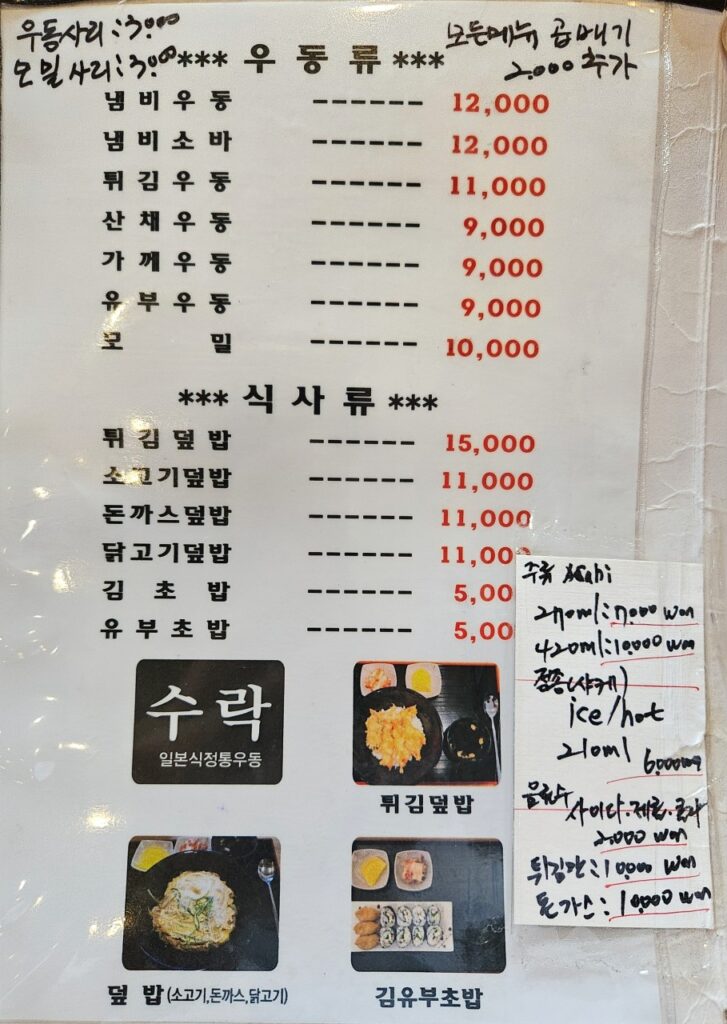 우동사리:3,000
모밀사리:3,000
모든메뉴 곱배기
2.000 추가
*** 우동류 ***
냄비우동 ------ 12,000
냄비소바 ------ 12,000
튀김우동 ------ 11,000
산채우동 ------ 9,000
가께우동 ------ 9,000
유부우동 ------ 9,000
모 밀 ------ 10,000
*** 식사류 ***
튀김덮밥 ------ 15,000
소고기덮밥 ------ 11,000
돈까스덮밥 ------ 11,000
닭고기덮밥 ------ 11,000
김초밥 ------ 5,00
유부초밥 ------ 5,00
주류 Asahi
270ml:7,000 won
420ml:10,000 won
정종(샤케)
ice/hot
210ml 6,000won
음료수
사이다.제로.콜라
2.000 won
튀김만:10,000 won
돈가스:10,000 won
수락
일본식정통우동
튀김덮밥
덮밥(소고기,돈까스,닭고기)
김유부초밥